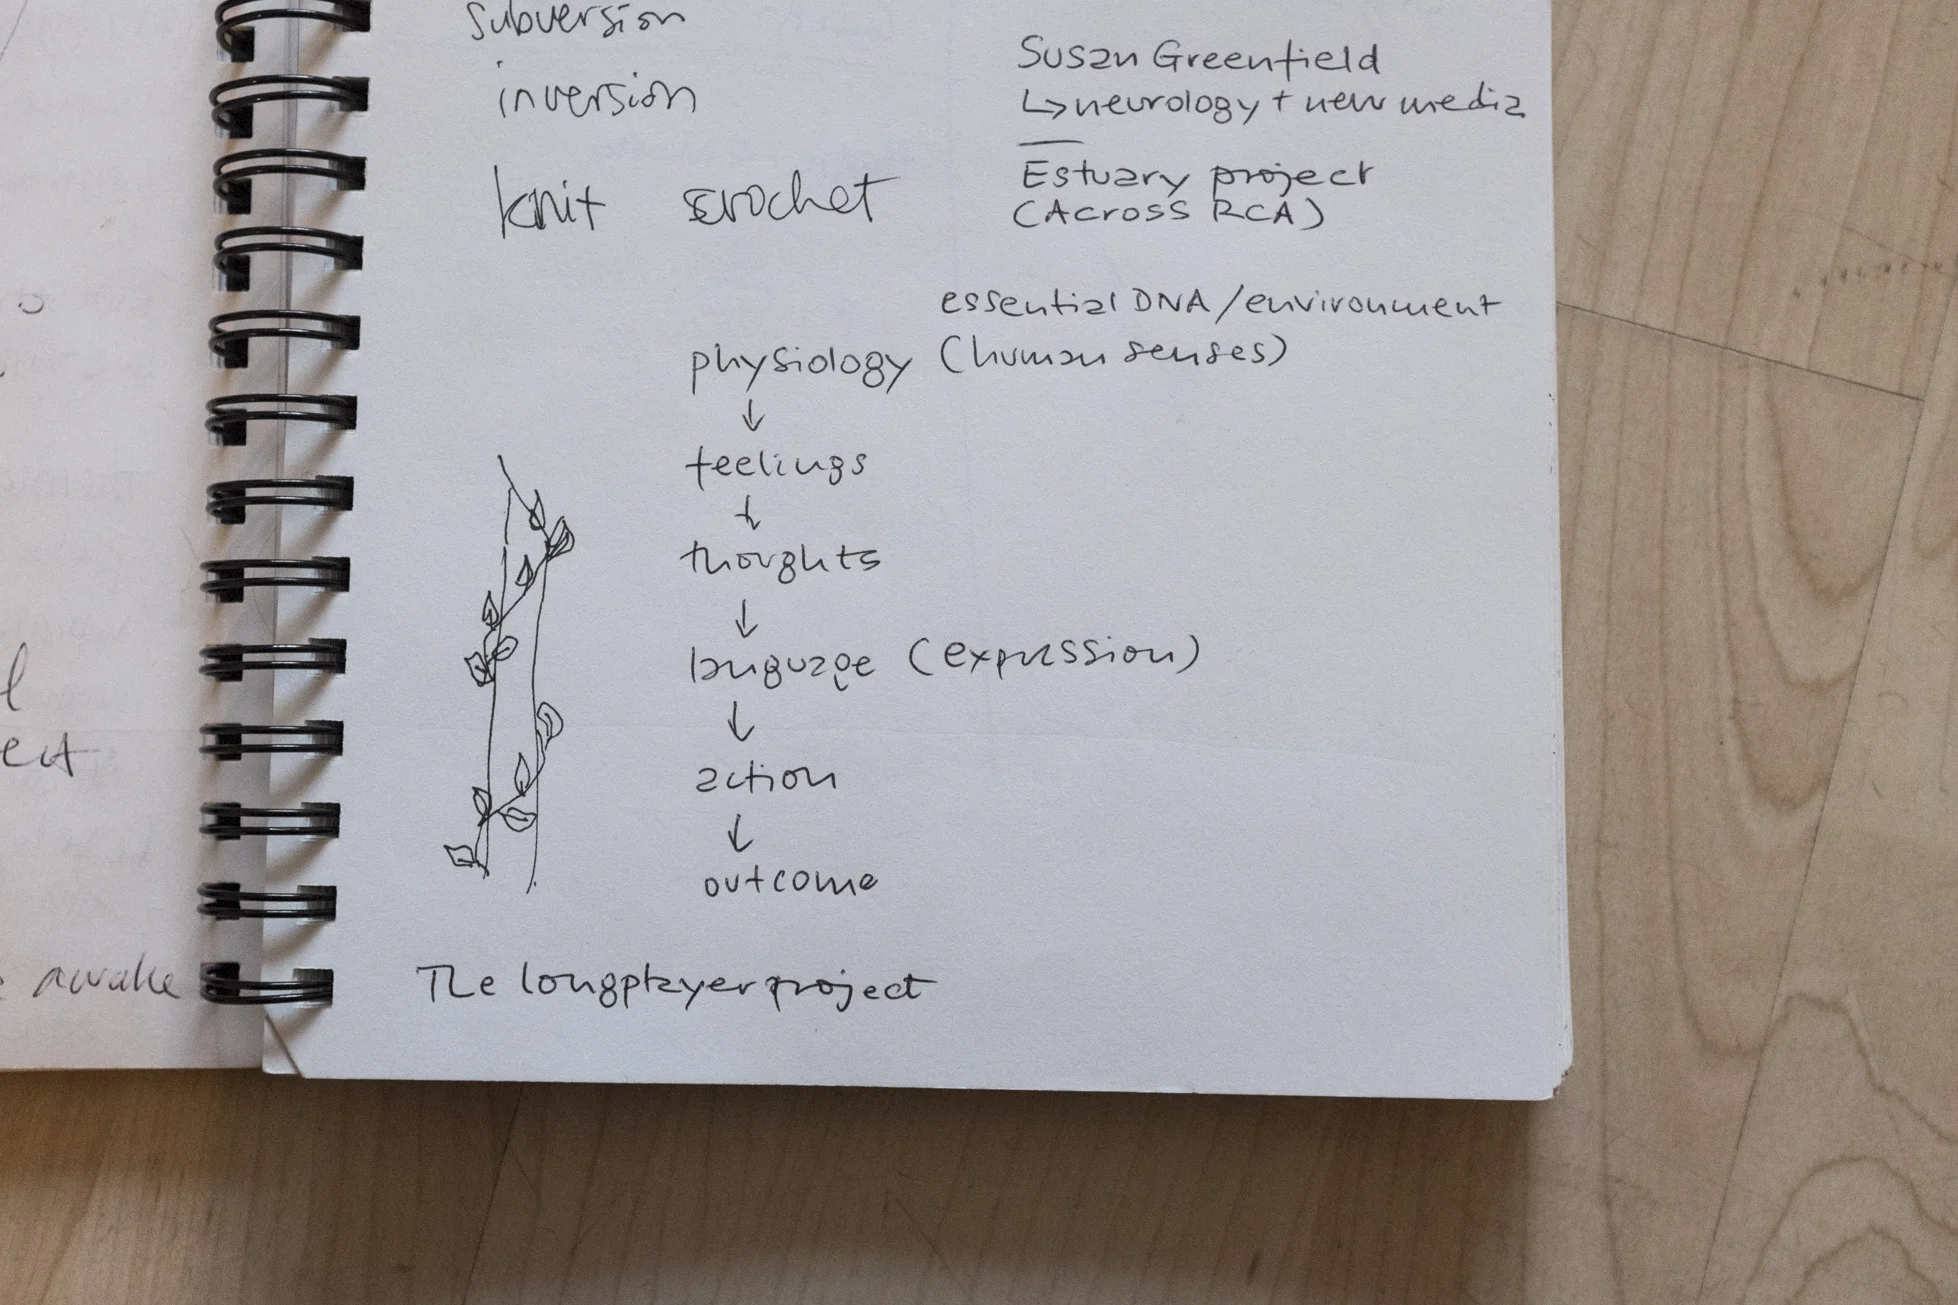 subversion
inversion
knit crochet
Susan Greenfield
↳ neurology + new media
Estuary project
(Across RCA)
essential DNA / environment
physiology (human senses)
↓
feelings
↓
thoughts
↓
language (expression)
↓
action
↓
outcome
The longplayer project
awake